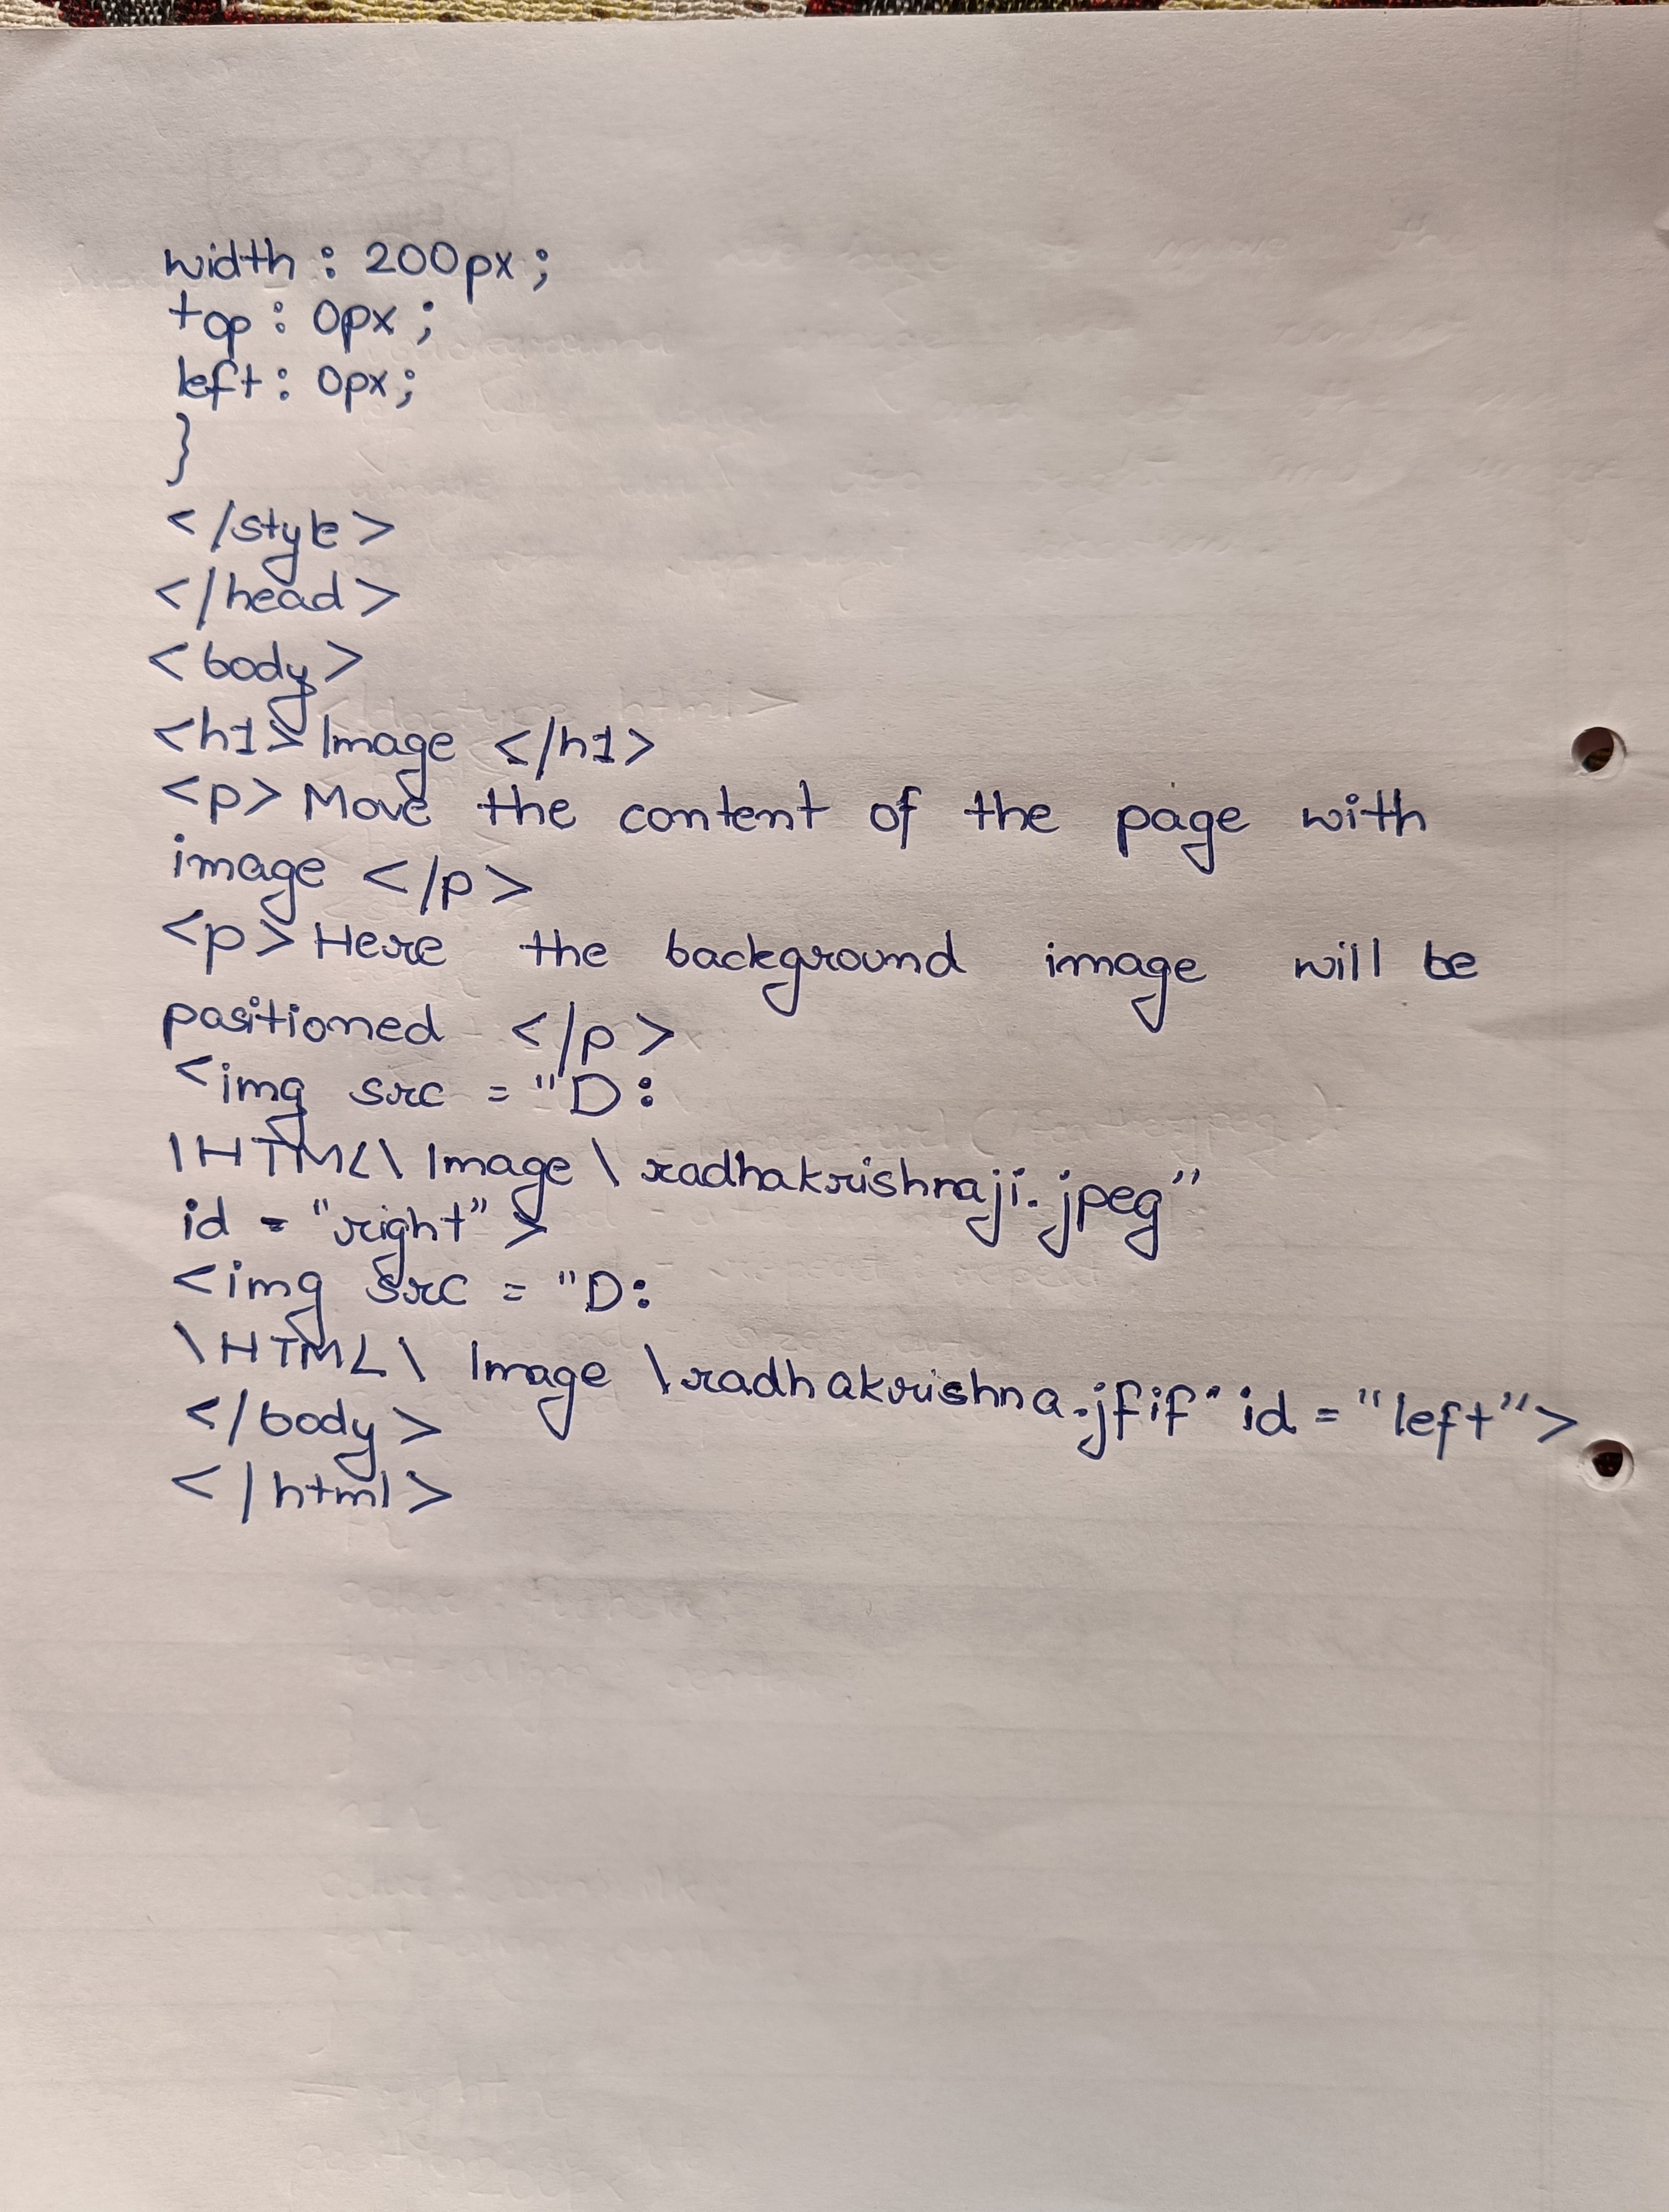 width : 200px ;
top : 0px ;
left : 0px ;
}
</style>
</head>
<body>
<h1> Image </h1>
<p> Move the content of the page with
image </p>
<p> Here the background image will be
positioned </p>
<img src = "D:
\HTML\ Image \ radhakrishnaji.jpeg"
id = "right" >
<img src = "D:
\HTML\ Image \radhakrishna.jfif" id = "left">
</body>
</html>